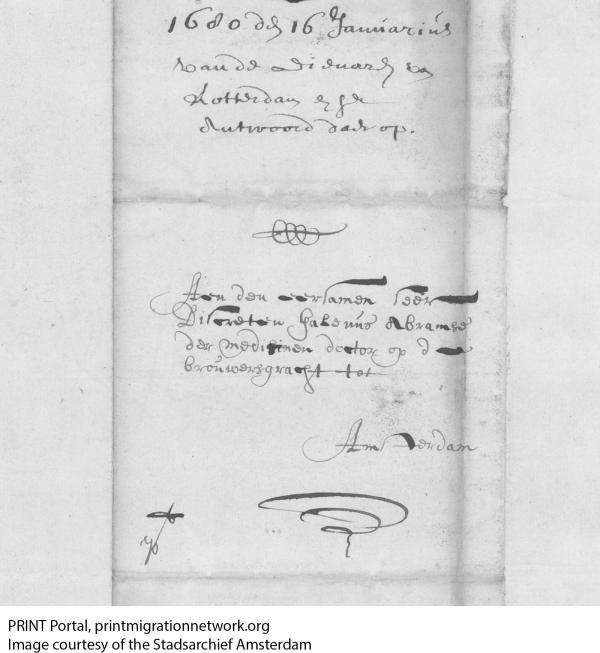 1680 den 16 Januarius
van de Dienaren van
Rotterdam en het
Antwoord daer op.
Aen den eersamen seer
Discreten Galenus Abramse
der medicinen doctor op de
brouwersgracht tot
Amsterdam
PRINT Portal, printmigrationnetwork.org
Image courtesy of the Stadsarchief Amsterdam